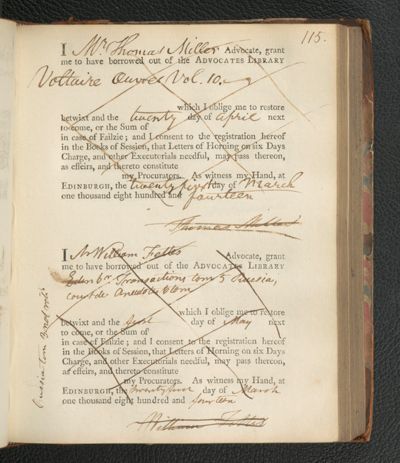 115.
I Mr. Thomas Miller Advocate, grant
me to have borrowed out of the ADVOCATES LIBRARY
Voltaire Œuvres Vol. 10.
which I oblige me to restore
betwixt and the twenty day of April next
to come, or the Sum of
in case of Failzie; and I consent to the registration hereof
in the Books of Session, that Letters of Horning on six Days
Charge, and other Executorials needful, may pass thereon,
as effeirs, and thereto constitute
my Procurators. As witness my Hand, at
EDINBURGH, the twenty first day of March
one thousand eight hundred and fourteen
Thomas Miller
I Mr William Fettes Advocate, grant
me to have borrowed out of the ADVOCATES LIBRARY
Edinbr Transactions tom 5 Russia,
court de Anecdotes tom
which I oblige me to restore
betwixt and the first day of May next
to come, or the Sum of
in case of Failzie; and I consent to the registration hereof
in the Books of Session, that Letters of Horning on six Days
Charge, and other Executorials needful, may pass thereon,
as effeirs, and thereto constitute
my Procurators. As witness my Hand, at
EDINBURGH, the day of March
one thousand eight hundred and fourteen
William Fettes
Russia tom